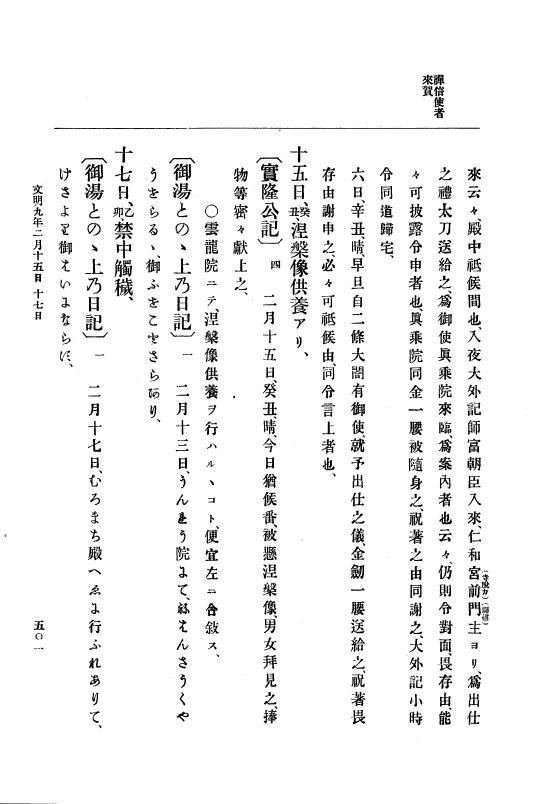 禪信使者
來賀
來云々、殿中祗候間也、入夜大外記師富朝臣入來、仁和宮前門主ヨリ、爲出仕
(寺殿カ)(禪信)
之禮太刀送給之、爲御使眞乘院來臨、爲案內者也云々、仍則令對面、畏存由、能
々可披露令申者也、眞乘院同金一腰被隨身之、祝著之由同謝之、大外記小時
令同道歸宅、
六日、辛丑、晴、早旦自二條大閤有御使、就予出仕之儀、金劒一腰送給之、祝著畏
存由謝申之、必々可祗候由、同令言上者也、
十五日、癸丑、涅槃像供養アリ、
〔實隆公記〕四 二月十五日、癸丑、晴、今日猶候番、被懸涅槃像、男女拜見之、捧
物等密々獻上之、
○雲龍院ニテ涅槃像供養ヲ行ハルヽコト、便宜左ニ合敍ス、
〔御湯とのゝ上乃日記〕一 二月十三日、うんりう院にて、ねはんさうくや
うをらるゝ、御ふをこをさらあり、
十七日、乙卯、禁中觸穢、
〔御湯とのゝ上乃日記〕一 二月十七日、むろまち殿へゑに行ふれありて、
けさよりを御えいよならに、
文明九年二月十五日 十七日
五〇一